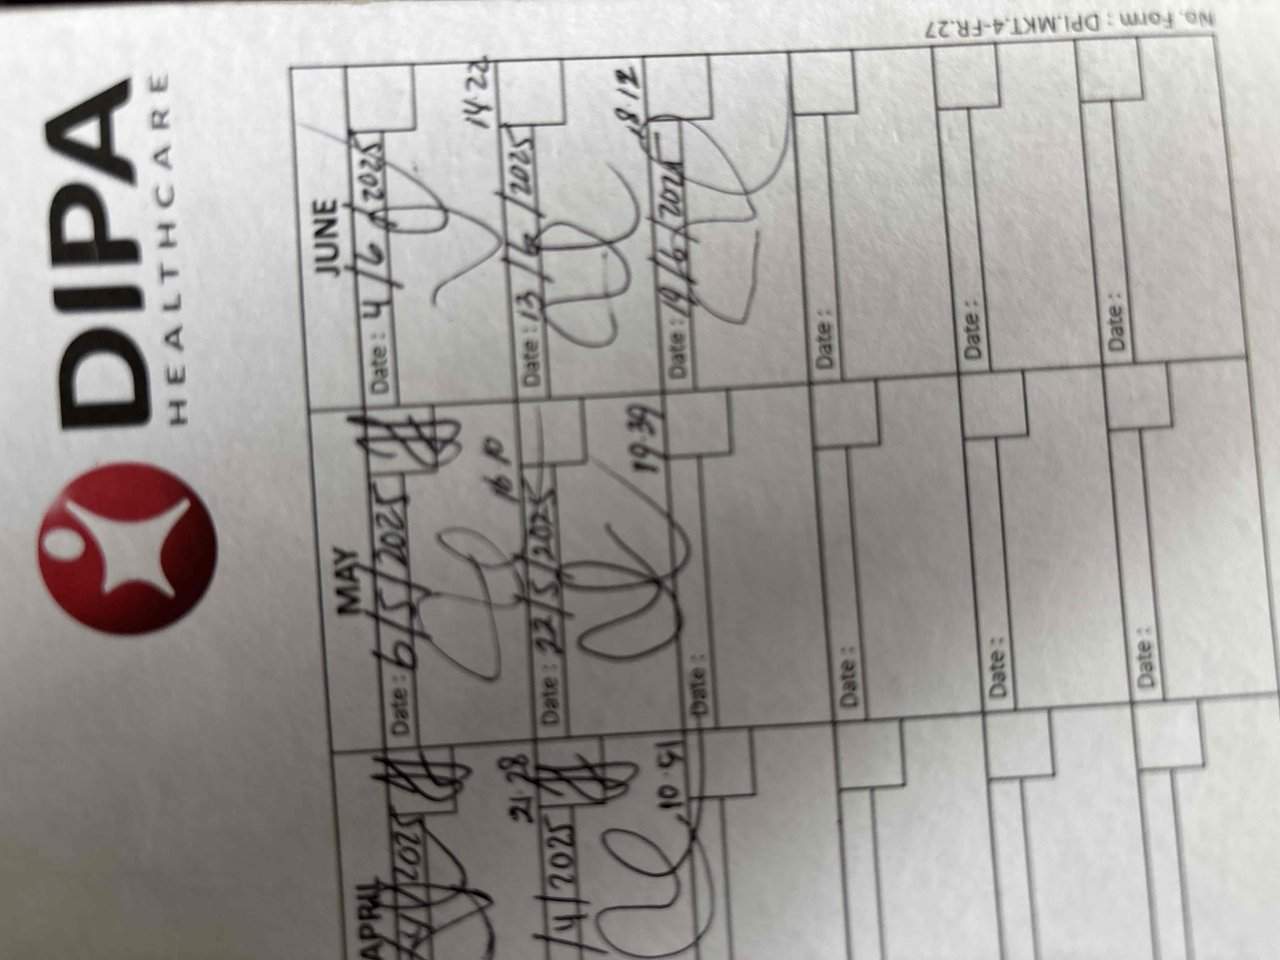 DIPA
HEALTHCARE
APRIL
MAY
JUNE
/4/2025
Date : 6/5/2025
Date : 4/6/2025
21.28
16.10
14.22
/4/2025
Date : 22/5/2025
Date : 13/6/2025
10.51
19.39
18.12
Date :
Date : 19/6/2025
Date :
Date :
Date :
Date :
Date :
Date :
No. Form : DPI.MKT.4-FR.27